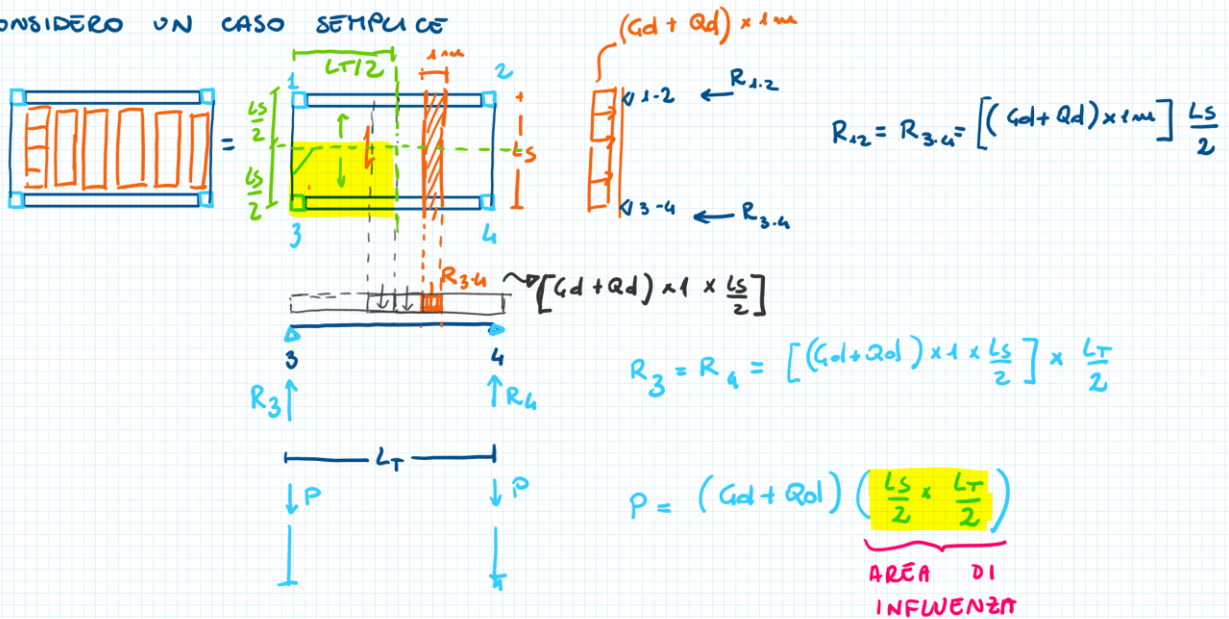 ONSIDERO UN CASO SEMPLICE
(Gd + Qd) × 1 m
LT/2
1 m
1
2
LS/2
LS/2
=
LS
1-2 ← R1.2
R12 = R3.4 = [(Gd+Qd) × 1m] LS/2
3-4 ← R3.4
3
4
R3-4
[Gd + Qd) × 1 × LS/2]
3
4
R3
R4
R3 = R4 = [(Gd+Qd) × 1 × LS/2] × LT/2
LT
P
P
P = (Gd + Qd) (LS/2 × LT/2)
AREA DI
INFLUENZA